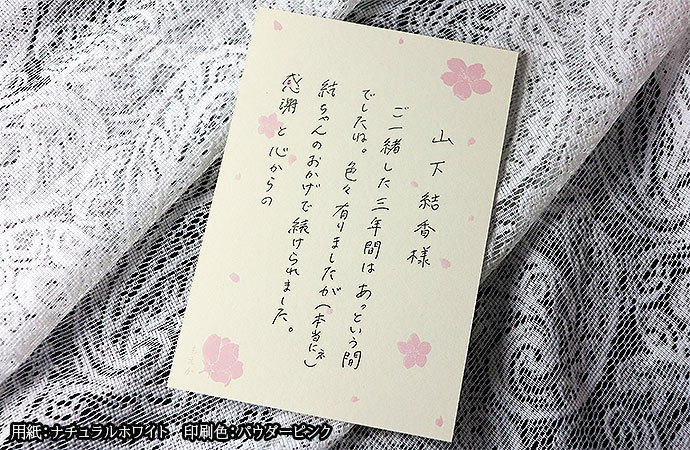 山下結香様
ご一緒した三年間はあっという間
でしたね。色々有りましたが(本当にネ)
結ちゃんのおかげで続けられました。
感謝と心からの
用紙:ナチュラルホワイト 印刷色:パウダーピンク